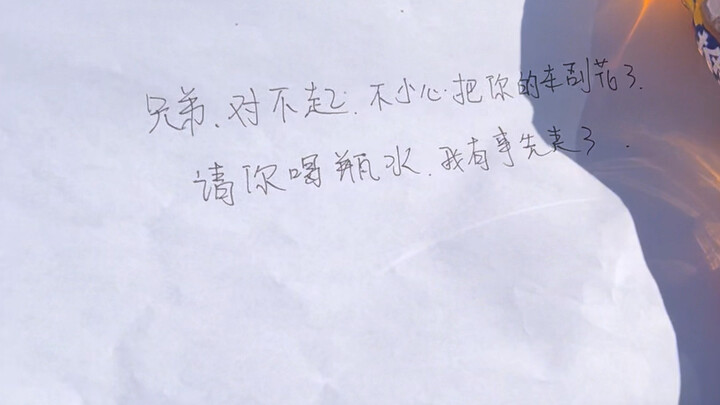 兄弟、对不起。不小心把你的车刮花了.
请你喝瓶水.我有事先走了.